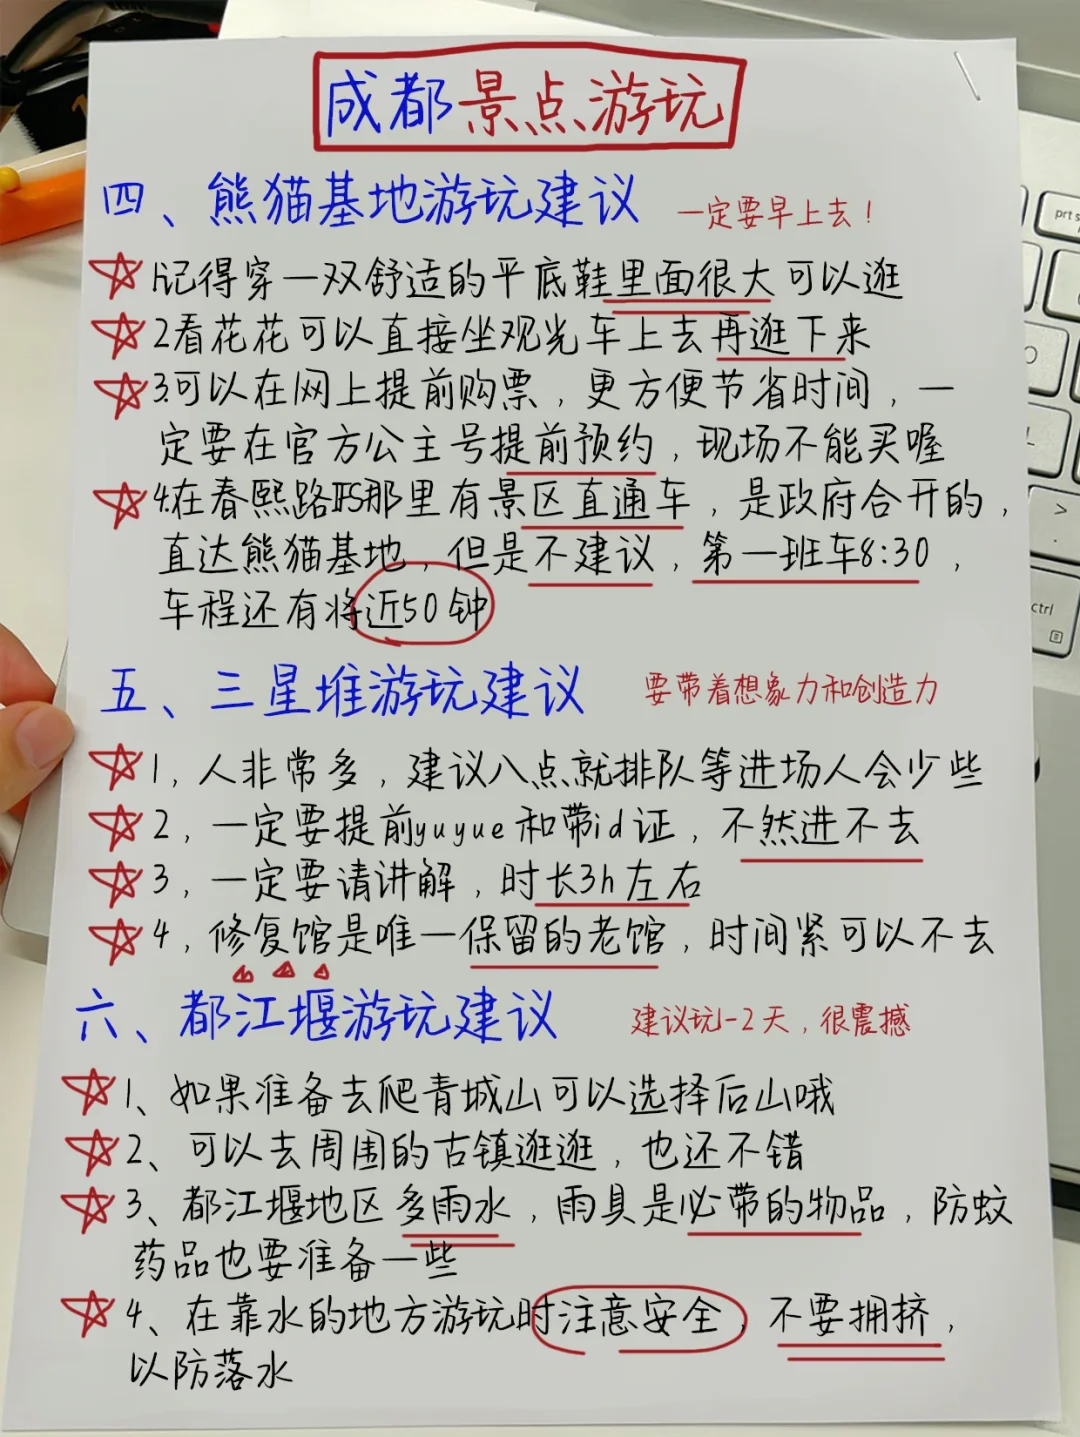 成都景点游玩
四、熊猫基地游玩建议 一定要早上去！
1.记得穿一双舒适的平底鞋里面很大可以逛
2看花花可以直接坐观光车上去再逛下来
3.可以在网上提前购票，更方便节省时间，一
定要在官方公主号提前预约，现场不能买喔
4.在春熙路IFS那里有景区直通车，是政府合开的，
直达熊猫基地，但是不建议，第一班车8:30，
车程还有将近50钟
五、三星堆游玩建议 要带着想象力和创造力
1，人非常多，建议八点就排队等进场人会少些
2，一定要提前yuyue和带id证，不然进不去
3，一定要请讲解，时长3h左右
4，修复馆是唯一保留的老馆，时间紧可以不去
六、都江堰游玩建议 建议玩1-2天，很震撼
1、如果准备去爬青城山可以选择后山哦
2、可以去周围的古镇逛逛，也还不错
3、都江堰地区多雨水，雨具是必带的物品，防蚊
药品也要准备一些
4、在靠水的地方游玩时注意安全，不要拥挤，
以防落水
prt s
ctrl